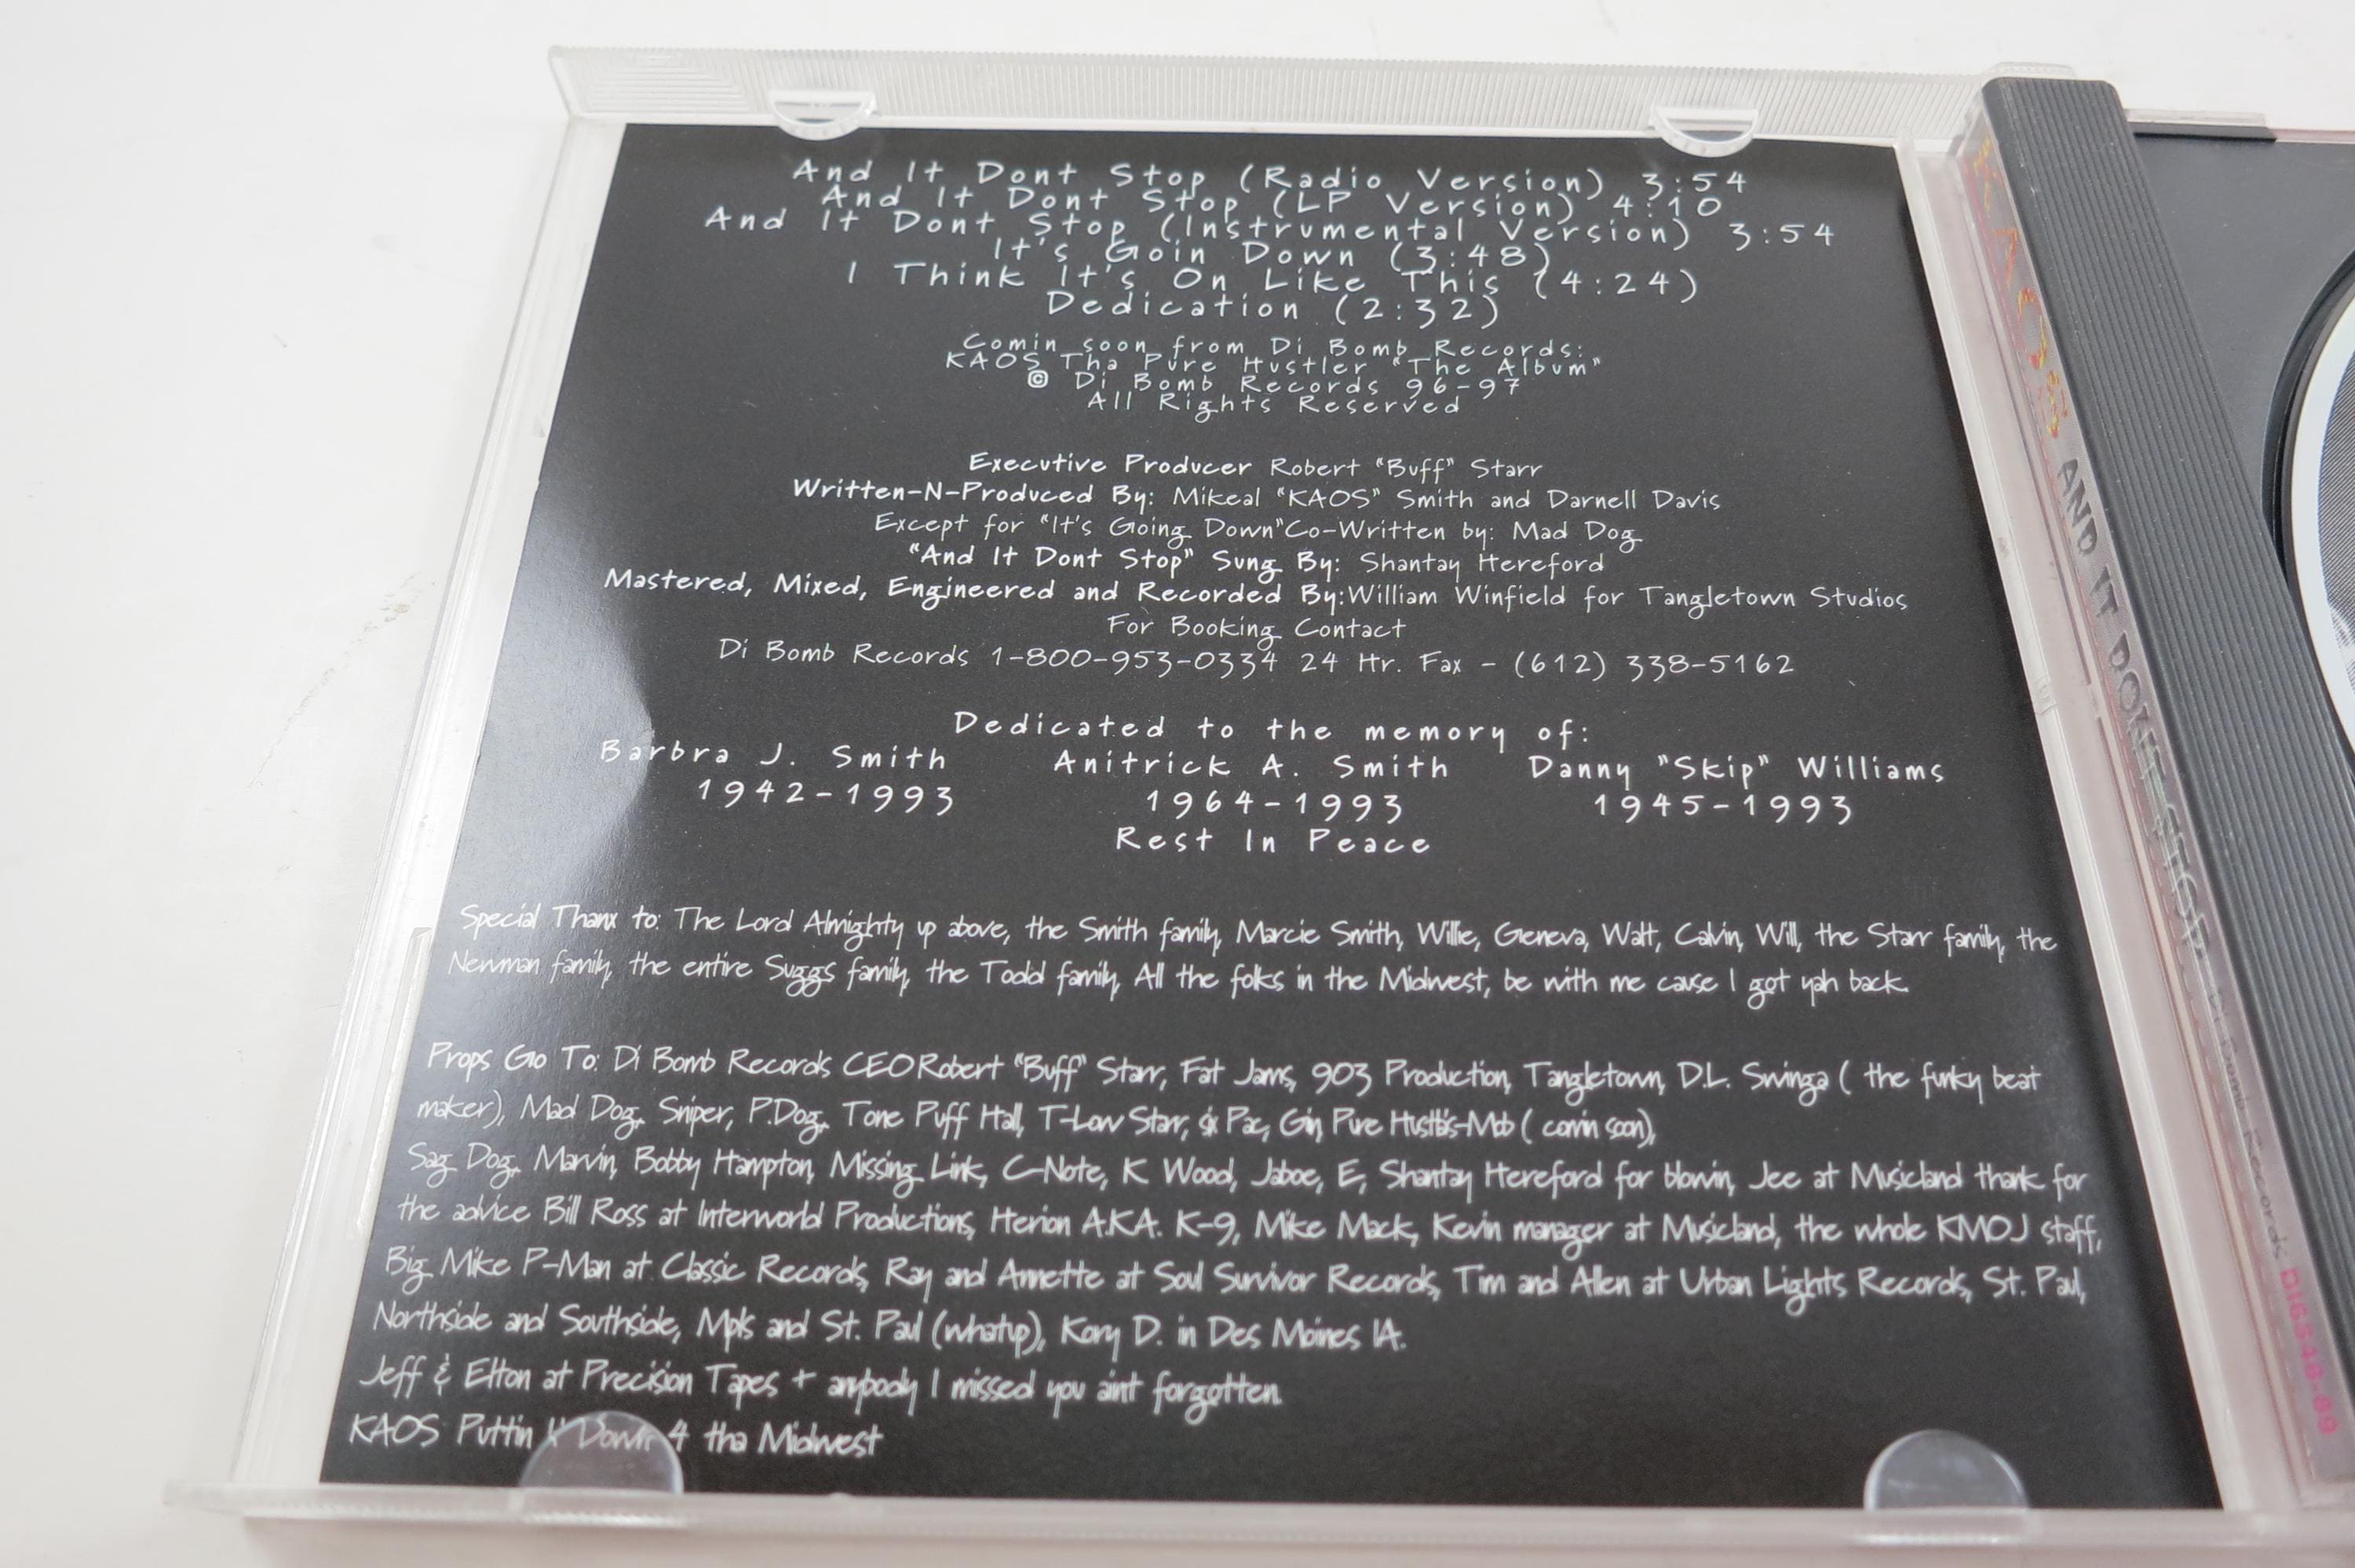 And It Dont Stop (Radio Version) 3:54
And It Dont Stop (LP Version) 4:10
And It Dont Stop (Instrumental Version) 3:54
It's Goin Down (3:48)
I Think It's On Like This (4:24)
Dedication (2:32)
Comin soon from Di Bomb Records:
KAOS Tha Pure Hustler "The Album"
© Di Bomb Records 96-97
All Rights Reserved
Executive Producer Robert "Buff" Starr
Written-N-Produced By: Mikeal "KAOS" Smith and Darnell Davis
Except for "It's Going Down"Co-Written by: Mad Dog
"And It Dont Stop" Sung By: Shantay Hereford
Mastered, Mixed, Engineered and Recorded By:William Winfield for Tangletown Studios
For Booking Contact
Di Bomb Records 1-800-953-0334 24 Hr. Fax - (612) 338-5162
Dedicated to the memory of:
Barbra J. Smith Anitrick A. Smith Danny "Skip" Williams
1942-1993 1964-1993 1945-1993
Rest In Peace
Special Thanx to: The Lord Almighty up above, the Smith family, Marcie Smith, Willie, Geneva, Walt, Calvin, Will, the Starr family, the
Newman family, the entire Suggs family, the Todd family, All the folks in the Midwest, be with me cause I got yah back.
Props Go To: Di Bomb Records CEO Robert "Buff" Starr, Fat Jams, 903 Production, Tangletown, D.L. Swinga ( the funky beat
maker), Mad Dog, Sniper, P.Dog, Tone Puff Hall, T-Low Starr, & Pac, Gin, Pure Hustla's-Mob ( comin soon),
Sag Dog, Marvin, Bobby Hampton, Missing Link, C-Note, K Wood, Jaboe, E, Shantay Hereford for blowin, Jee at Musicland thank for
the advice Bill Ross at Interworld Productions, Herion A.K.A. K-9, Mike Mack, Kevin manager at Musicland, the whole KMOJ staff,
Big Mike P-Man at Classic Records, Ray and Annette at Soul Survivor Records, Tim and Allen at Urban Lights Records, St. Paul,
Northside and Southside, Mpls and St. Paul (whatup), Kory D. in Des Moines IA.
Jeff & Elton at Precision Tapes + anybody I missed you aint forgotten.
KAOS Puttin It Down 4 tha Midwest
KAOS AND IT DONT STOP Di Bomb Records